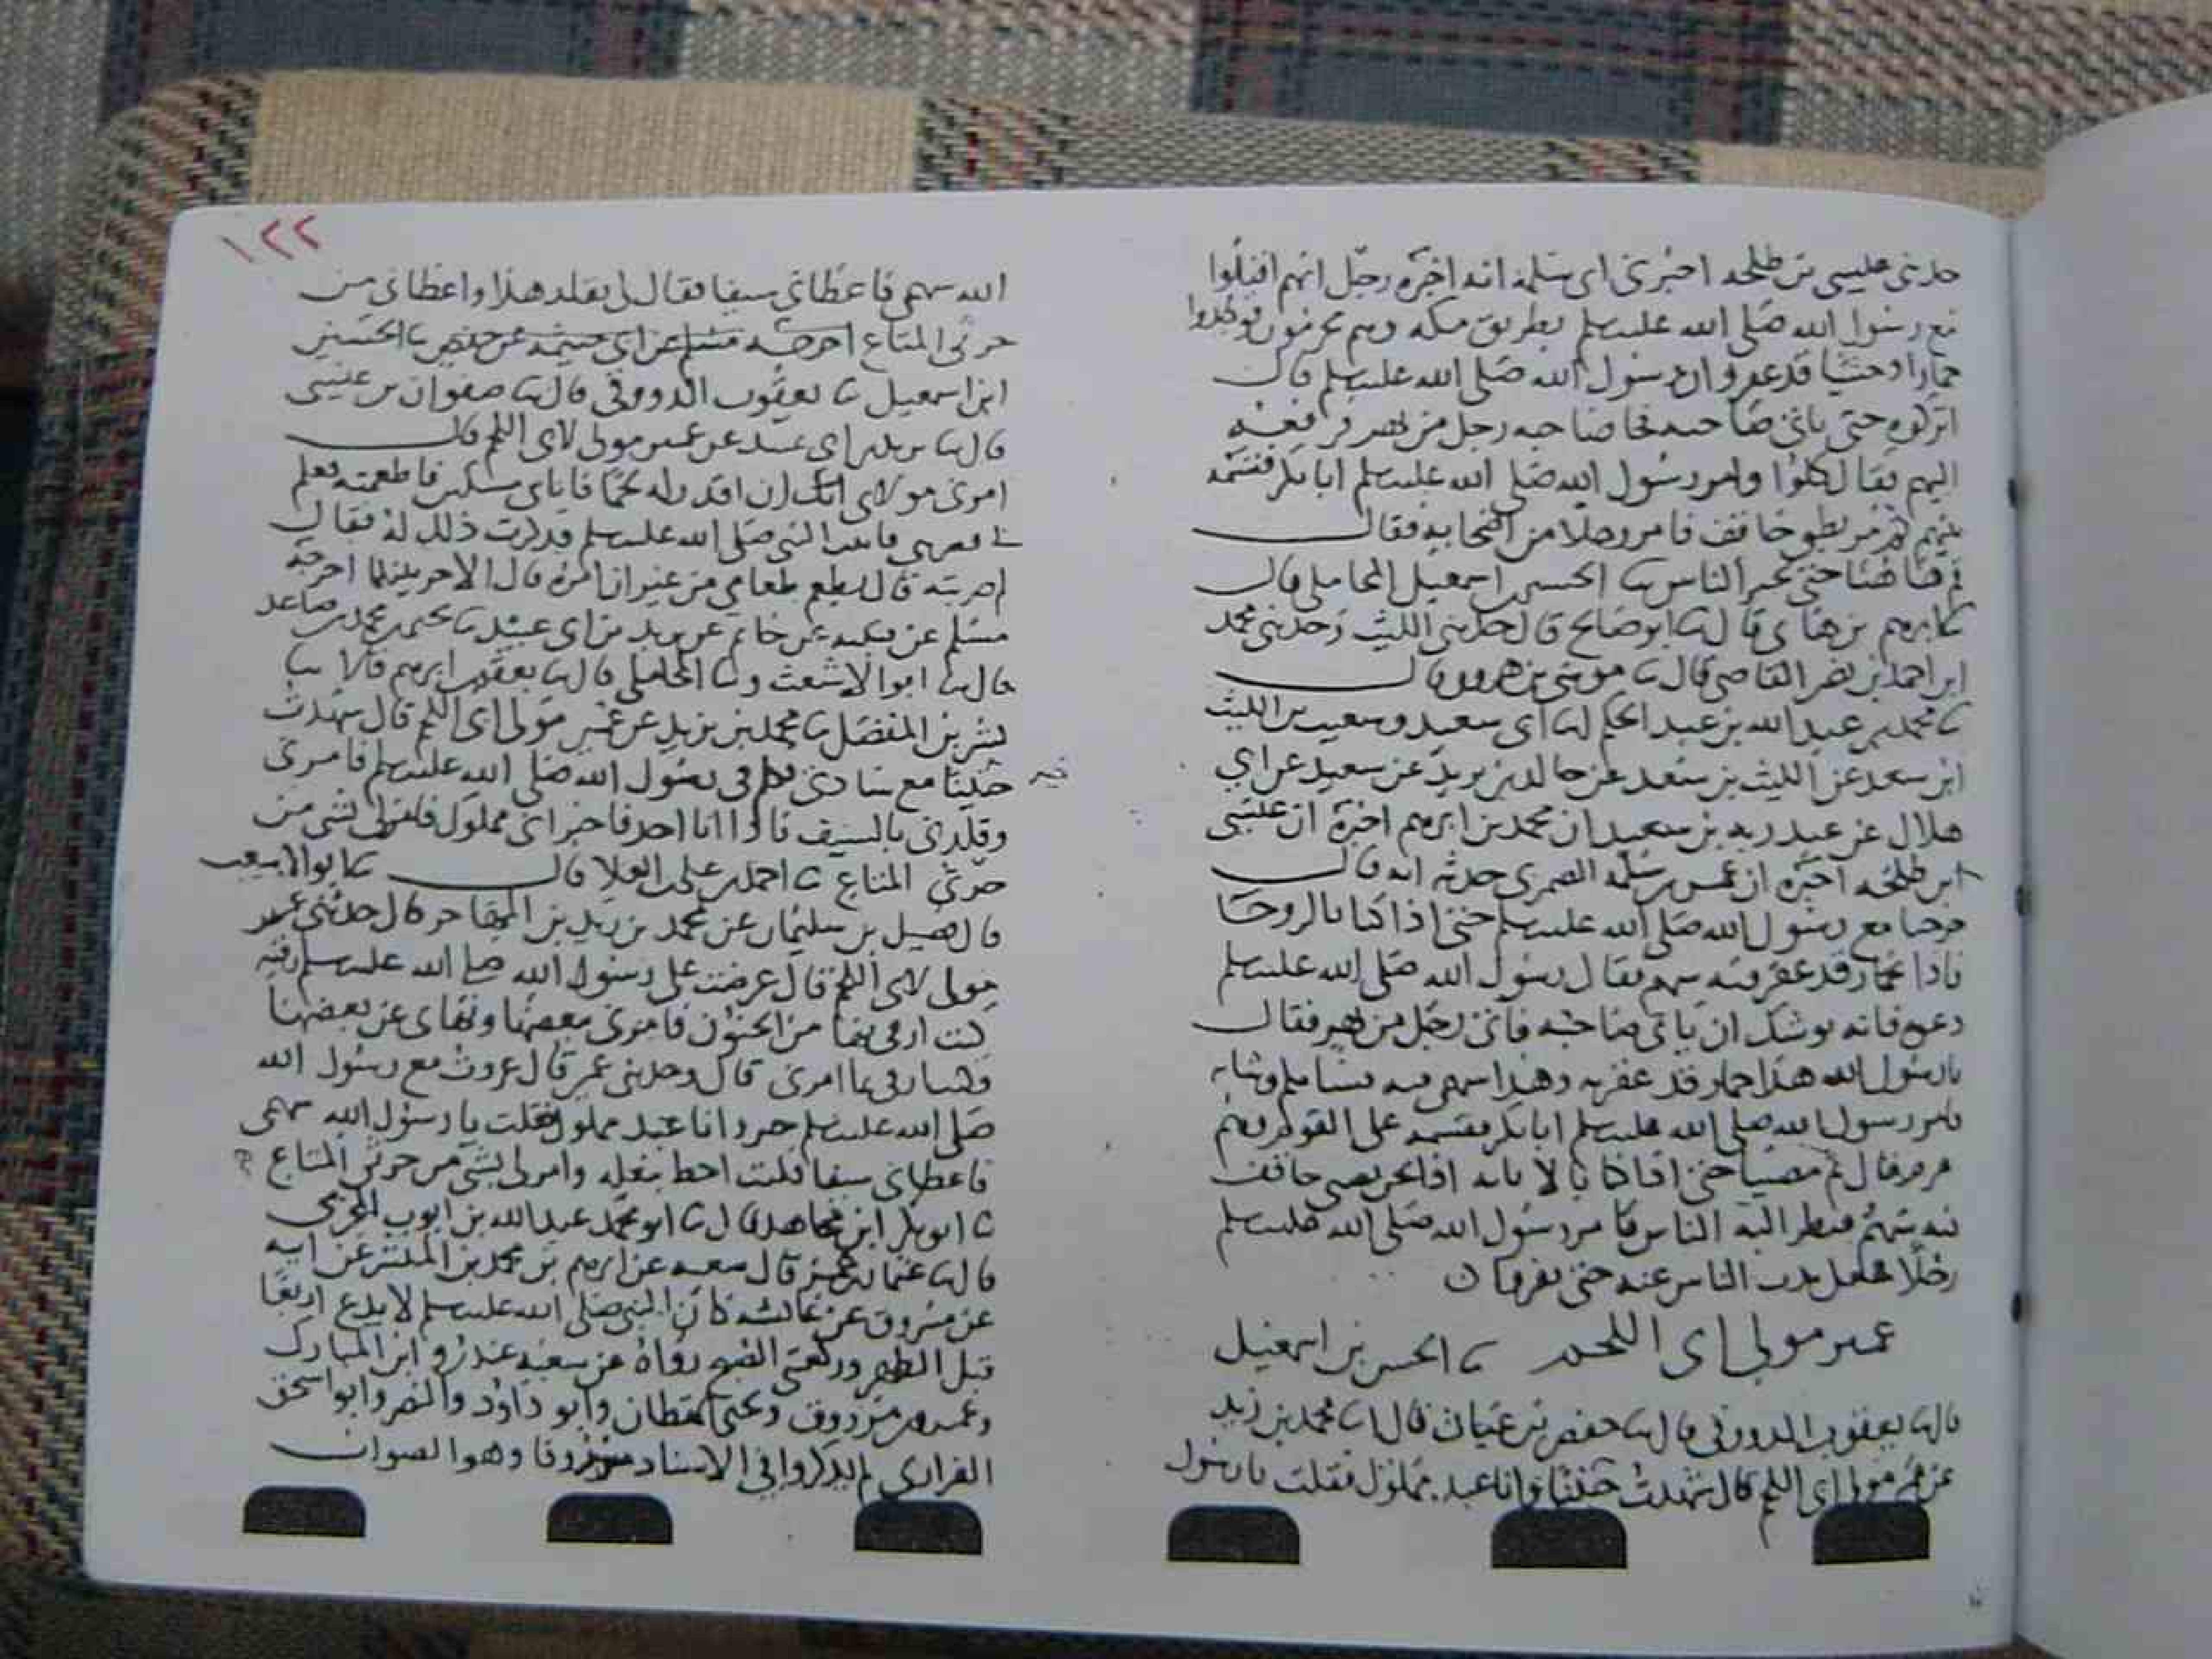 حدثني عيسى بن طلحه اخبرني اى سلمة انه اخبره رجل انهم اقبلوا
مع رسول الله صلى الله عليه وسلم بطريق مكه وهم محرمون فوجدوا
حمارا وحشيا قد عقر وان رسول الله صلى الله عليه وسلم قال
اتركوه حتى ياتي صاحبه فجا صاحبه رجل من بهز
اليهم فقال كلوا وامر رسول الله صلى الله عليه وسلم ابا بكر فقسمه
بينهم ثم مر بظبي حاقف فامر رجلا من اصحابه فقال
قف هنا حتى يمر الناس ثنا الحسين بن اسمعيل المحاملي قال
ثنا ابرهيم بن هاني قال ثنا ابو صالح قال حدثني الليث وحدثني محمد
ابن احمد بن نصر القاضي قال ثنا موسى بن هرون قال
ثنا محمد بن عبد الله بن عبد الحكم ثنا اى سعيد وسعيب بن الليث
ابن سعد عن الليث بن سعد عن خالد بن يزيد عن سعيد عن اي
هلال عن عبد ربه بن سعيد ان محمد بن ابرهيم اخبره ان عيسى
ابن طلحه اخبره ان عمير بن سلمه الضمري حدثه انه قال
خرجنا مع رسول الله صلى الله عليه وسلم حتى اذا كنا بالروحا
فاذا حمار قد عقر فيه سهم فقال رسول الله صلى الله عليه وسلم
دعوه فانه يوشك ان ياتي صاحبه فاتى رجل من بهز فقال
يارسول الله هذا حمار قد عقرته وهذا سهمي فيه
فامر رسول الله صلى الله عليه وسلم ابا بكر فقسمه على القوم وهم
حرم قال ثم مضينا حتى اذا كنا بالاثايه اذا نحن بظبي حاقف
فيه سهم فنظر اليه الناس فامر رسول الله صلى الله عليه وسلم
رجلا فجعل يذب الناس عنه حتى نفروا
عمير مولى اى اللحم ثنا الحسين بن اسمعيل
قال ثنا يعقوب الدورقي قال ثنا حفص بن غياث قال ثنا محمد بن زيد
عن عمير مولى اى اللحم قال شهدت حنينا وانا عبد مملوك فقلت يا رسول
١٢٢
الله سهمي فاعطاني سيفا فقال لي تقلد هذا واعطاني من
خرثي المتاع اخرجه مسلم عن اى خيثمه عن حفص ثنا الحسين
ابن اسمعيل ثنا يعقوب الدورقي قال ثنا صفوان بن عيسى
قال ثنا يزيد بن اى عبيد عن عمير مولى لاى اللحم قال
امرني مولاي ان اقدد له لحما فاتاني مسكين فاطعمته فعلم
فضربني فاتيت النبي صلى الله عليه وسلم فذكرت ذلك له فقال
لم ضربته قال يطعم طعامي من غير ان امره قال الاجر بينكما اخرجه
مسلم عن قتيبه عن حاتم عن يزيد بن اى عبيد ثنا يحيى بن محمد بن صاعد
قال ثنا ابو الاشعث وثنا المحاملي قال ثنا يعقوب بن ابرهيم قالا ثنا
بشر بن المفضل ثنا محمد بن زيد عن عمير مولى اى اللحم قال شهدت
خيبر
حنينا مع سادتي فكلم في رسول الله صلى الله عليه وسلم فامرني
وقلدني بالسيف فاذا انا اجره فاخبر اني مملوك فامر لي بشي من
خرثي المتاع ثنا احمد بن علي بن العلا قال ثنا ابو الاشعث
قال فضيل بن سليمان عن محمد بن زيد بن المهاجر قال حدثني عمير
مولى لاى اللحم قال عرضت على رسول الله صلى الله عليه وسلم رقيه
كنت ارقي بها من الجنون فامرني ببعضها ونهاني عن بعضها
وكنت ارقي بما امرني قال وحدثني عمير قال غزوت مع رسول الله
صلى الله عليه وسلم خيبر وانا عبد مملوك فقلت يا رسول الله سهمي
فاعطاني سيفا فكنت اخط بنعله وامر لي بشي من خرثي المتاع
ثنا ابو بكر ابن مجاهد قال ثنا ابو محمد عبد الله بن ايوب المخرمي
قال ثنا عثمان بن عمر قال شعبه عن ابرهيم بن محمد بن المنتشر عن ابيه
عن مسروق عن عائشه كان النبي صلى الله عليه وسلم لا يدع اربعا
قبل الظهر وركعتي الصبح رواه عن شعبه غندر وابن المبارك
وعمرو بن مرزوق ويحيى القطان وابو داود والنضر وابو اسحق
الفزاري لم يذكروا في الاسناد مسروقا وهو الصواب